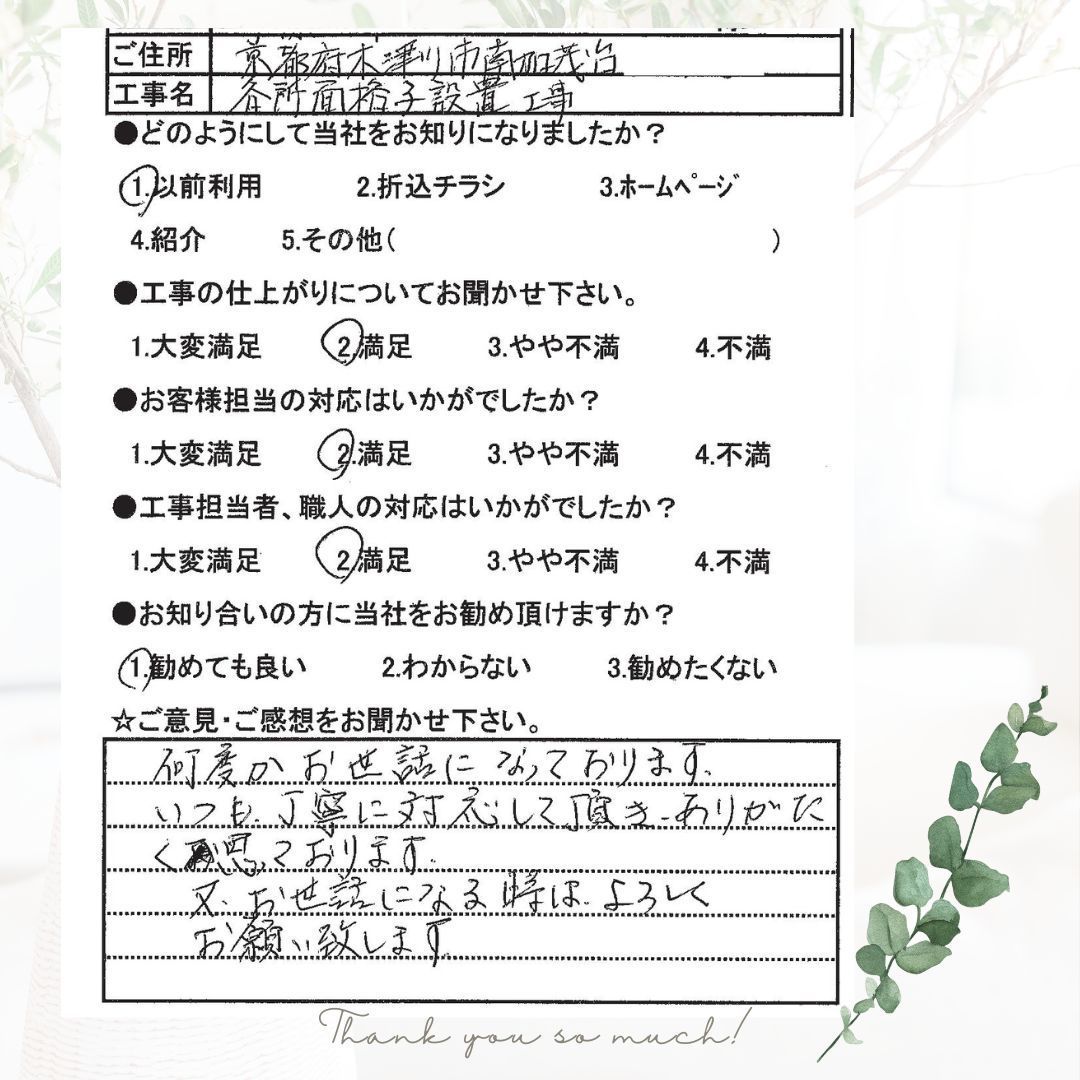 ご住所 京都府木津川市南加茂台
工事名 各所面格子設置工事
●どのようにして当社をお知りになりましたか？
1.以前利用 2.折込チラシ 3.ﾎｰﾑﾍﾟｰｼﾞ
4.紹介 5.その他( )
●工事の仕上がりについてお聞かせ下さい。
1.大変満足 2.満足 3.やや不満 4.不満
●お客様担当の対応はいかがでしたか？
1.大変満足 2.満足 3.やや不満 4.不満
●工事担当者、職人の対応はいかがでしたか？
1.大変満足 2.満足 3.やや不満 4.不満
●お知り合いの方に当社をお勧め頂けますか？
1.勧めても良い 2.わからない 3.勧めたくない
☆ご意見・ご感想をお聞かせ下さい。
何度かお世話になっております。
いつも、丁寧に対応して頂き、ありがた
く思っております。
又、お世話になる時は、よろしく
お願い致します。
Thank you so much!